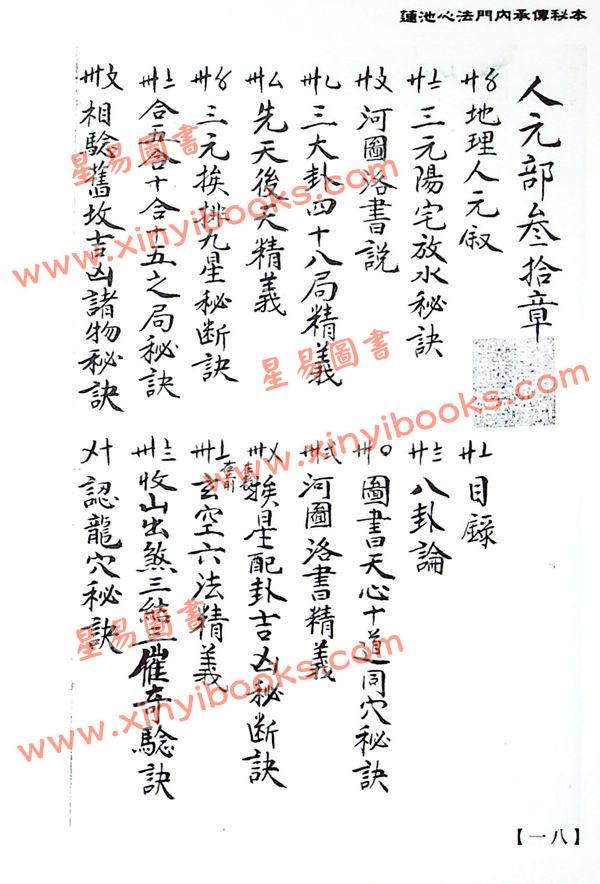 蓮池心法門內承傳秘本
人元部叁拾章
地理人元叙
目錄
三元陽宅放水秘訣
八卦論
河圖洛書説
圖書天心十道同穴秘訣
三大卦四十八局精義
河圖洛書精義
先天後天精義
挨星配卦吉凶秘断訣
三元挨排九星秘断訣
玄空六法精義
合五合十合十五之局秘訣
收山出煞三催奇驗訣
相驗舊坟吉凶諸物秘訣
認龍穴秘訣
【一八】
星易圖書
www.xinyibooks.com
星易圖書
www.xinyibooks.com
星易圖書
www.xinyibooks.com